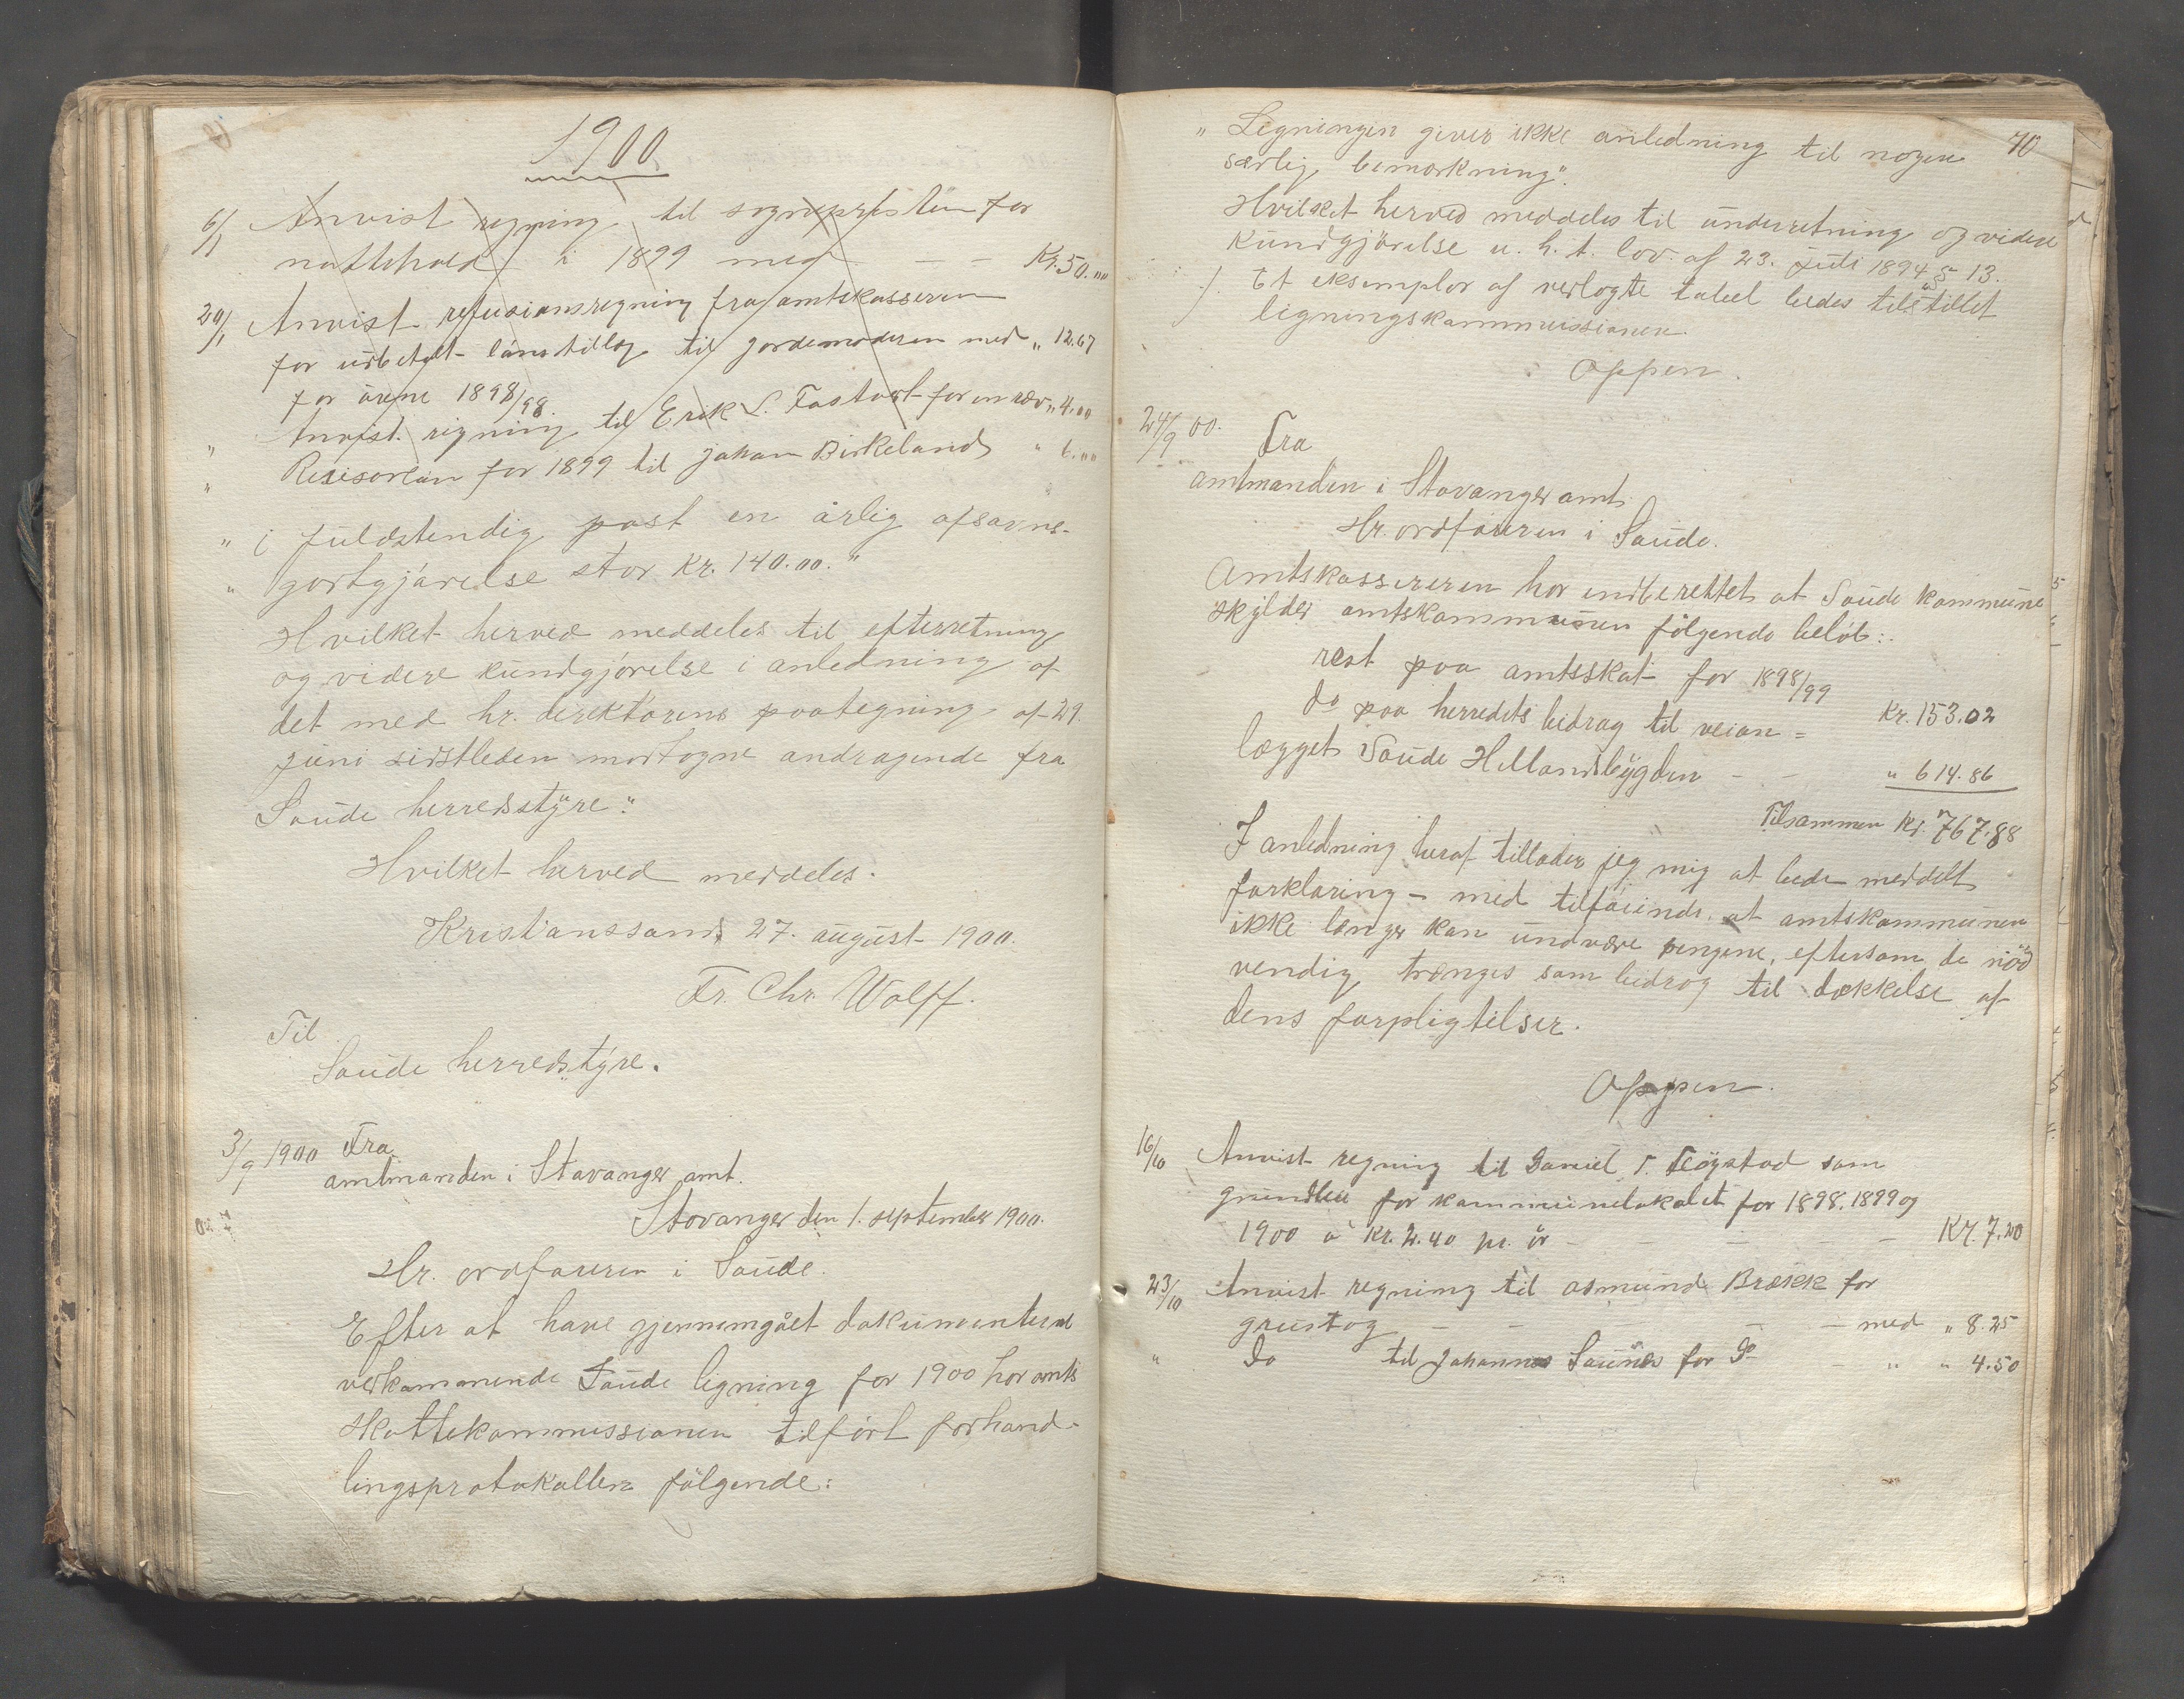 1900
6/1 Anvist regning til sognepresten for
nattehold i 1899 med — — Kr. 50.""
20/1 Anvist refusionsregning fra amtskasseren
for udbetalt lönstillæg til jordemoderen med " 12.67
for årene 1898/98.
" Anvist regning til Erik L. Fostvet for en ræv " 4.00
" Revisorlön for 1899 til Johan Birkeland " 6.""
" i fuldstendig post en årlig afsavns-
" godtgjörelse stor Kr. 140.00."
Hvilket herved meddeles til efterretning
og videre kundgjörelse i anledning af
det med hr. direktörens paategning af 29.
juni sidstleden modtagne andragende fra
Saude herredsstyre."
Hvilket herved meddeles.
Kristianssand 27. august 1900.
Fr. Chr. Wolff.
Til
Saude herredstyre.
3/9 1900 Fra
amtmanden i Stavanger amt.
Stavanger den 1. september 1900.
Hr. ordföreren i Saude.
Efter at have gjennemgået dokumenterne
vedkommende Saude ligning for 1900 har amts
skattekommissionen tilfört forhand-
lingsprotokollen fölgende:
70
" Legningen giver ikke anledning til nogen
særlig bemærkning".
Hvilket herved meddeles til underretning og videre
kundgjörelse u. h. t. lov. af 23. juli 1894 § 13.
./. Et eksemplar af vedlagte tabel bedes tilstillet
ligningskommissionen.
Oppen.
24/9 00. Fra
amtmanden i Stavanger amt
Hr. ordföreren i Saude.
Amtskassereren har indberettet at Saude kommune
skylder amtskommunen fölgende belöb:
rest paa amtsskat for 1898/99 Kr. 153.02
do paa herredets bidrag til veian=
lægget Saude Hellandsbygden — — " 614.86
Tilsammen Kr. 767.88
I anledning heraf tillader jeg mig at bede meddelt
forklaring — med tilföiende at amtskommunen
ikke længer kan undvære pengene, eftersom de nöd
vendig trænges som bidrag til dækkelse af
dens forpligtelser.
Oppen.
16/10 Anvist regning til Daniel T. Flögstad som
grundleie for kommunelokalet for 1898. 1899 og
1900 à Kr. 2.40 pr. år — — — — Kr. 7.20
23/10 Anvist regning til Asmund Brække for
grustag — — — — — med " 8.25
" Do til Johannes for Do — " " 4.50